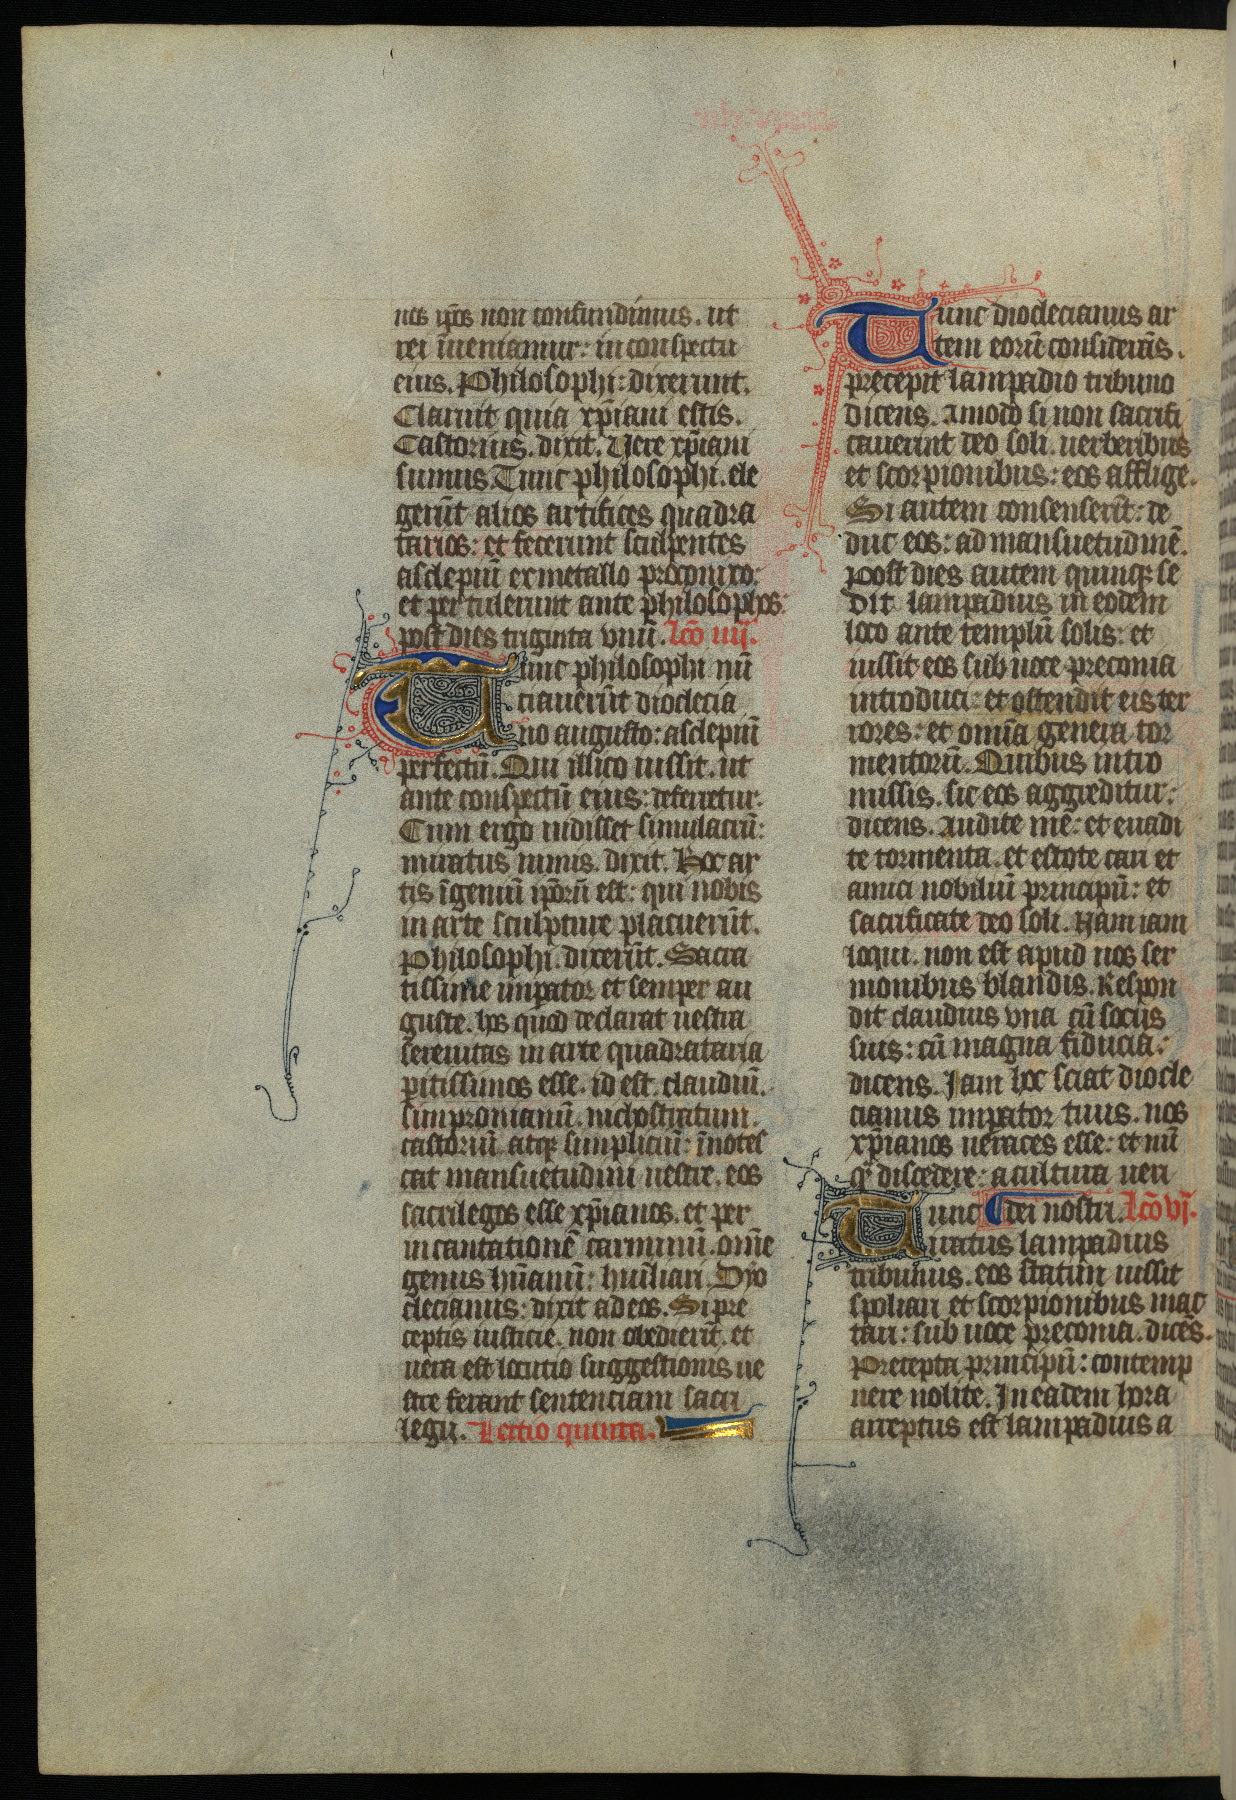 nos ip̄os non confundimus. ut
rei īueniamur: in conspectu
eius. Philosophi: dixerunt.
Claruit quia xp̄iani estis.
Castorius. dixit. Uere xp̄iani
sumus. Tunc philosophi. ele
gerūt alios artifices quadra
tarios: et fecerunt sculpentes
asclepiū ex metallo proconixo:
et pertulerunt ante philosophos:
post dies triginta vnū. lc̄o iiij.
Tunc philosophi nū
ciauerūt dioclecia
no augusto: asclepiū
perfectū. Qui illico iussit. ut
ante conspectū eius: deferretur.
Cum ergo uidisset simulacrū:
miratus nimis. dixit. Hoc ar
tis īgeniū ip̄orū est: qui nobis
in arte sculpture placuerūt.
Philosophi. dixerūt. Sacra
tissime imp̄ator et semper au
guste. hos quod declarat uestra
serenitas in arte quadrataria
peritissimos esse. id est. claudiū.
simpronianū. nichostratum.
castoriū atq; simpliciū: īnotes
cat mansuetudini uestre. eos
sacrilegos esse xp̄ianos. et per
incantationē carminū. om̄e
genus hūanū: hūiliari. Dyo
clecianus: dixit ad eos. Si pre
ceptis iusticie. non obedierīt. et
uera est locutio suggestionis ue
stre ferant sentenciam sacri
legij. Lectio quinta.
Tunc dioclecianus ar
tem eorū considerās.
precepit lampadio tribuno
dicens. Amodo si non sacrifi
cauerint deo soli. uerberibus
et scorpionibus: eos afflige.
Si autem consenserīt: de
duc eos: ad mansuetudinē.
Post dies autem quinq; se
dit lampadius in eodem
loco ante templū solis: et
iussit eos sub uoce preconia
introduci: et ostendit eis ter
rores: et omīa genera tor
mentorū. Quibus intro
missis. sic eos aggreditur:
dicens. Audite me: et euadi
te tormenta. et estote cari et
amici nobiliū principū: et
sacrificate deo soli. Nam iam
loqui. non est apud nos ser
monibus blandis. Respon
dit claudius vna cū socijs
suis: cū magna fiducia:
dicens. Iam hoc sciat diocle
cianus imp̄ator tuus. nos
xp̄ianos ueraces esse: et nū
q̄ discedere: a cultura ueri
Tunc dei nostri. lc̄o vj.
iratus lampadius
tribunus. eos statim iussit
spoliari et scorpionibus mac
tari: sub uoce preconia. dicēs.
Precepta principū: contemp
nere nolite. In eadem hora
arreptus est lampadius a